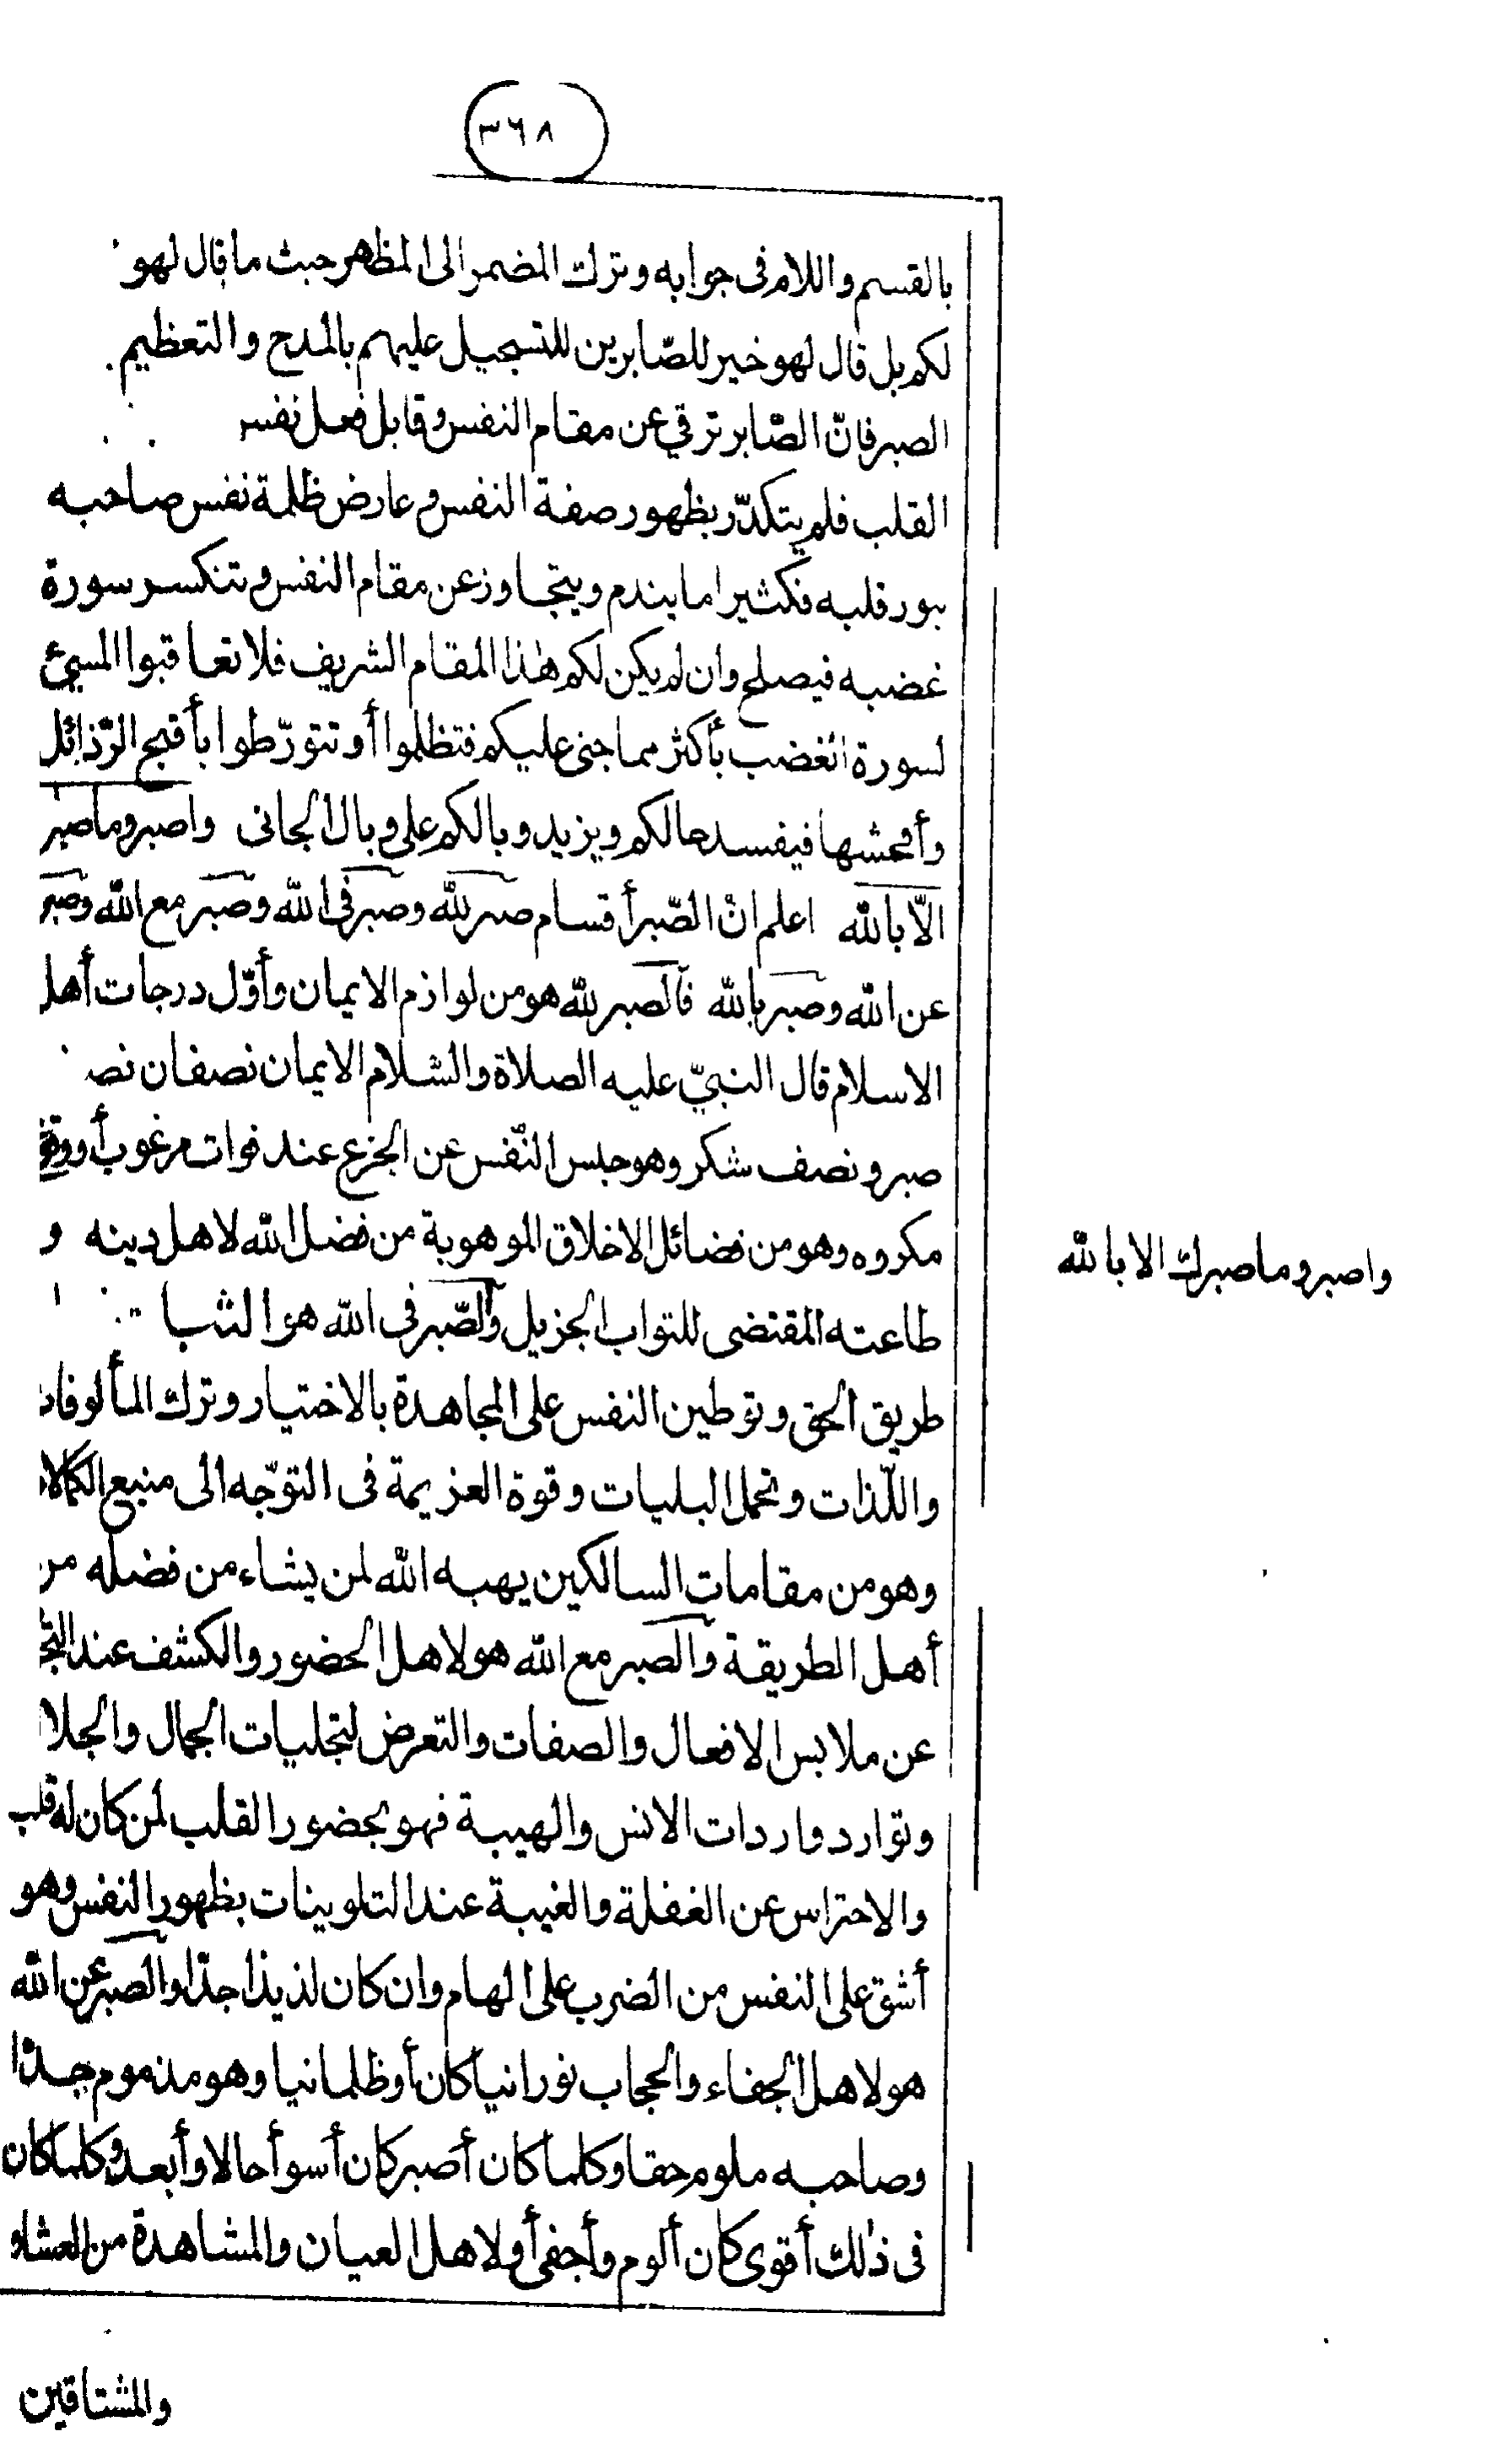 ٣٦٨
بالقسم واللام فى جوابه وترك المضمر الى المظهر حيث ما قال لهو
لكم بل قال لهو خير للصّابرين للتسجيل عليهم بالمدح والتعظيم
الصبر فانّ الصّابر ترقي عن مقام النفس وقابل فعل نفس
القلب فلم يتكدّر بظهور صفة النفس وعارض ظلمة نفس صاحبه
بنور قلبه فكثيرا ما يندم ويتجاوز عن مقام النفس وتنكسر سورة
غضبه فيصلح وان لم يكن لكم هذا المقام الشريف فلا تعاقبوا المسيئ
لسورة الغضب بأكثر مما جنى عليكم فتظلموا أو تتورّطوا بأقبح الرّذائل
وأفحشها فيفسد حالكم ويزيد وبالكم على وبال الجانى واصبر وما صبر
الّا بالله اعلم انّ الصّبر أقسام صبر لله وصبر فى الله وصبر مع الله وصبر
عن الله وصبر بالله فالصبر لله هو من لوازم الايمان وأوّل درجات أهل
الاسلام قال النبيّ عليه الصلاة والسّلام الايمان نصفان نصف
صبر ونصف شكر وهو حبس النّفس عن الجزع عند فوات مرغوب أو وقو
مكروه وهو من فضائل الاخلاق الموهوبة من فضل الله لاهل دينه و
طاعته المقتضى للثواب الجزيل والصّبر فى الله هو الثبا
طريق الحق وتوطين النفس على المجاهدة بالاختيار وترك المألوفات
واللّذات وتحمل البليات وقوة العزيمة فى التوجّه الى منبع الكمالا
وهو من مقامات السالكين يهبه الله لمن يشاء من فضله من
أهل الطريقة والصبر مع الله هو لاهل الحضور والكشف عند التج
عن ملابس الافعال والصفات والتعرض لتجليات الجمال والجلا
وتوارد واردات الانس والهيبة فهو بحضور القلب لمن كان له قلب
والاحتراس عن الغفلة والغيبة عند التلوينات بظهور النفس وهو
أشق على النفس من الضرب على الهام وان كان لذيذا جدّا والصبر عن الله
هو لاهل الجفاء والحجاب نورانيا كان أو ظلمانيا وهو مذموم جدّا
وصاحبه ملوم حقا وكلما كان أصبر كان أسوأ حالا وأبعد وكلما كان
فى ذلك أقوى كان ألوم وأجفى أو لاهل العيان والمشاهدة من العشاق
والمشتاقين
واصبر وما صبرك الا بالله